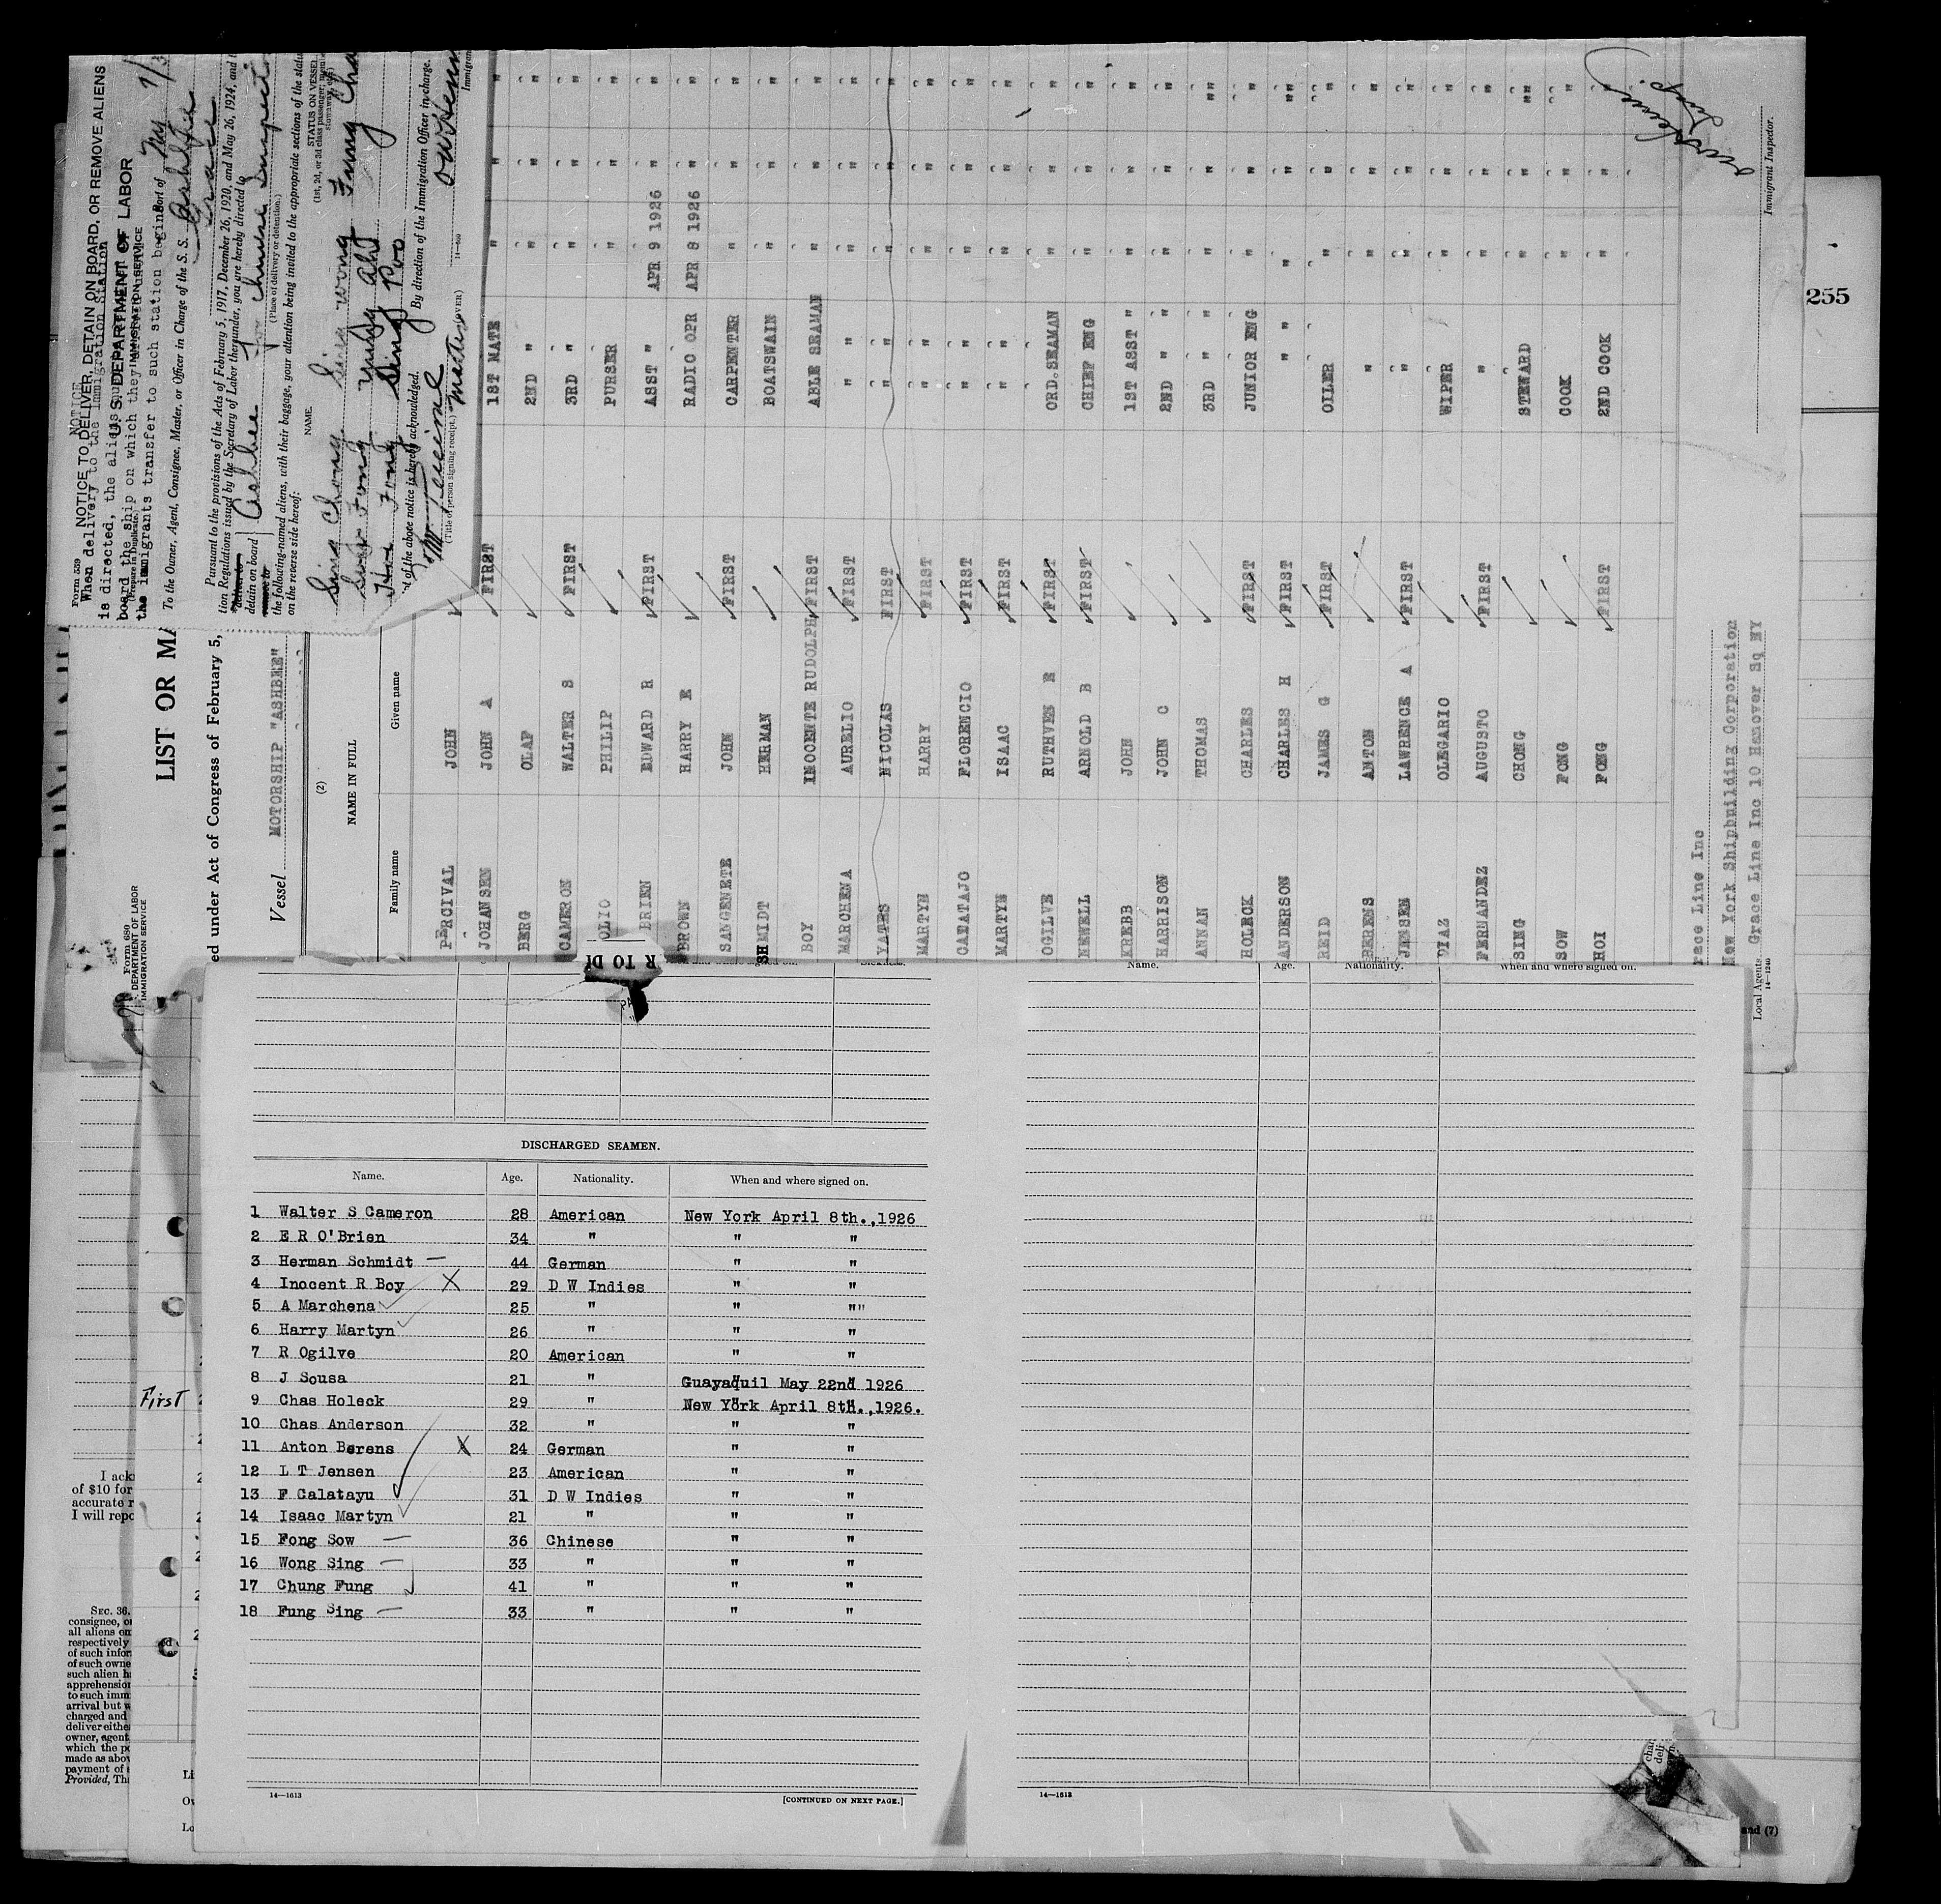 Form 539
NOTICE
NOTICE TO DELIVER, DETAIN ON BOARD, OR REMOVE ALIENS
When delivery to the Immigration Station
is directed, the aliens
U. S. DEPARTMENT OF LABOR
IMMIGRATION SERVICE
board the ship on which they
(Prepare in Duplicate.)
the immigrants transfer to such station begins.
Port of
To the Owner, Agent, Consignee, Master, or Officer in Charge of the S. S. Ashbee
Grace
Pursuant to the provisions of the Acts of February 5, 1917, December 26, 1920, and May 26, 1924, and
tion Regulations issued by the Secretary of Labor thereunder, you are hereby directed to
detain on board Ashbee for Chinese Inspect
(Place of delivery or detention.)
the following-named aliens, with their baggage, your attention being invited to the appropriate sections of the
on the reverse side hereof:
NAME.
STATUS ON VESSEL
(1st, 2d, or 3d class passenger,
Sing Chong Sing Wong Fung Chu
Sow Fong
Hoi Fong Sing Poo
of the above notice is hereby acknowledged. By direction of the Immigration Officer in charge.
(Title of person signing receipt.)
Master
(OVER)
14—539
Immigran
LIST OR MA
ed under Act of Congress of February 5,
Form 680
DEPARTMENT OF LABOR
IMMIGRATION SERVICE
Vessel MOTORSHIP "ASHBEE"
(2)
NAME IN FULL
Family name Given name
PERCIVAL JOHN
JOHANSEN JOHN A FIRST 1ST MATE " " "
BERG OLAF 2ND " " " "
CAMERON WALTER S FIRST 3RD " " " "
OLIO PHILIP PURSER " " "
BRIEN EDWARD R FIRST ASST " APR 9 1926 " "
BROWN HARRY E RADIO OPR APR 8 1926 " "
SANGENETE JOHN FIRST CARPENTER " " "
SHMIDT HERMAN BOATSWAIN " " "
BOY INOCENTE RUDOLPH FIRST ABLE SEAMAN " " "
MARCHENA AURELIO FIRST " " " " "
YATES NICOLAS FIRST " " " " "
MARTYN HARRY FIRST " " " " "
CADATAJO FLORENCIO FIRST " " " " "
MARTYN ISAAC FIRST " " " " "
OGILVE RUTHVEN E FIRST ORD.SEAMAN " " "
NEWELL ARNOLD B FIRST CHIEF ENG " " "
KREBB JOHN 1ST ASST " " " "
HARRISON JOHN C 2ND " " " " "
ANNAN THOMAS 3RD " " " " "
HOLECK CHARLES FIRST JUNIOR ENG " " "
ANDERSON CHARLES H FIRST " " " " "
REID JAMES G FIRST OILER " " "
BERENS ANTON " " " "
JENSEN LAWRENCE A FIRST " " " "
DIAZ OLEGARIO WIPER " " "
FERNANDEZ AUGUSTO FIRST " " " "
SING CHONG STEWARD " " "
SOW FONG COOK " " "
HOI FONG FIRST 2ND COOK " " "
Immigrant Inspector.
race Line Inc
New York Shipbuilding Corporation
Local Agents Grace Line Inc 10 Hanover Sq NY
14—1240
255
R TO DI
Name. Age. Nationality. When and where signed on.
DISCHARGED SEAMEN.
Name. Age. Nationality. When and where signed on.
1 Walter S Cameron 28 American New York April 8th.,1926
2 E R O'Brien 34 " " "
3 Herman Schmidt — 44 German " "
4 Inocent R Boy X 29 D W Indies " "
5 A Marchena 25 " " ""
6 Harry Martyn 26 " " "
7 R Ogilve 20 American " "
8 J Sousa 21 " Guayaquil May 22nd 1926
9 Chas Holeck 29 " New York April 8th.,1926.
10 Chas Anderson 32 " " "
11 Anton Berens X 24 German " "
12 L T Jensen 23 American " "
13 F Calatayu 31 D W Indies " "
14 Isaac Martyn 21 " " "
15 Fong Sow — 36 Chinese " "
16 Wong Sing — 33 " " "
17 Chung Fung 41 " " "
18 Fung Sing — 33 " " "
14—1613
[CONTINUED ON NEXT PAGE.]
14—1613
First
I ack
of $10 for
accurate r
I will repo
SEC. 36.
consignee, o
all aliens on
respectively
of such infor
of such owne
such alien h
apprehension
to such imm
arrival but w
charged and
deliver eithe
owner, agent,
which the p
made as abov
payment of s
Provided, Th
Li
Ow
Lo
and (7)